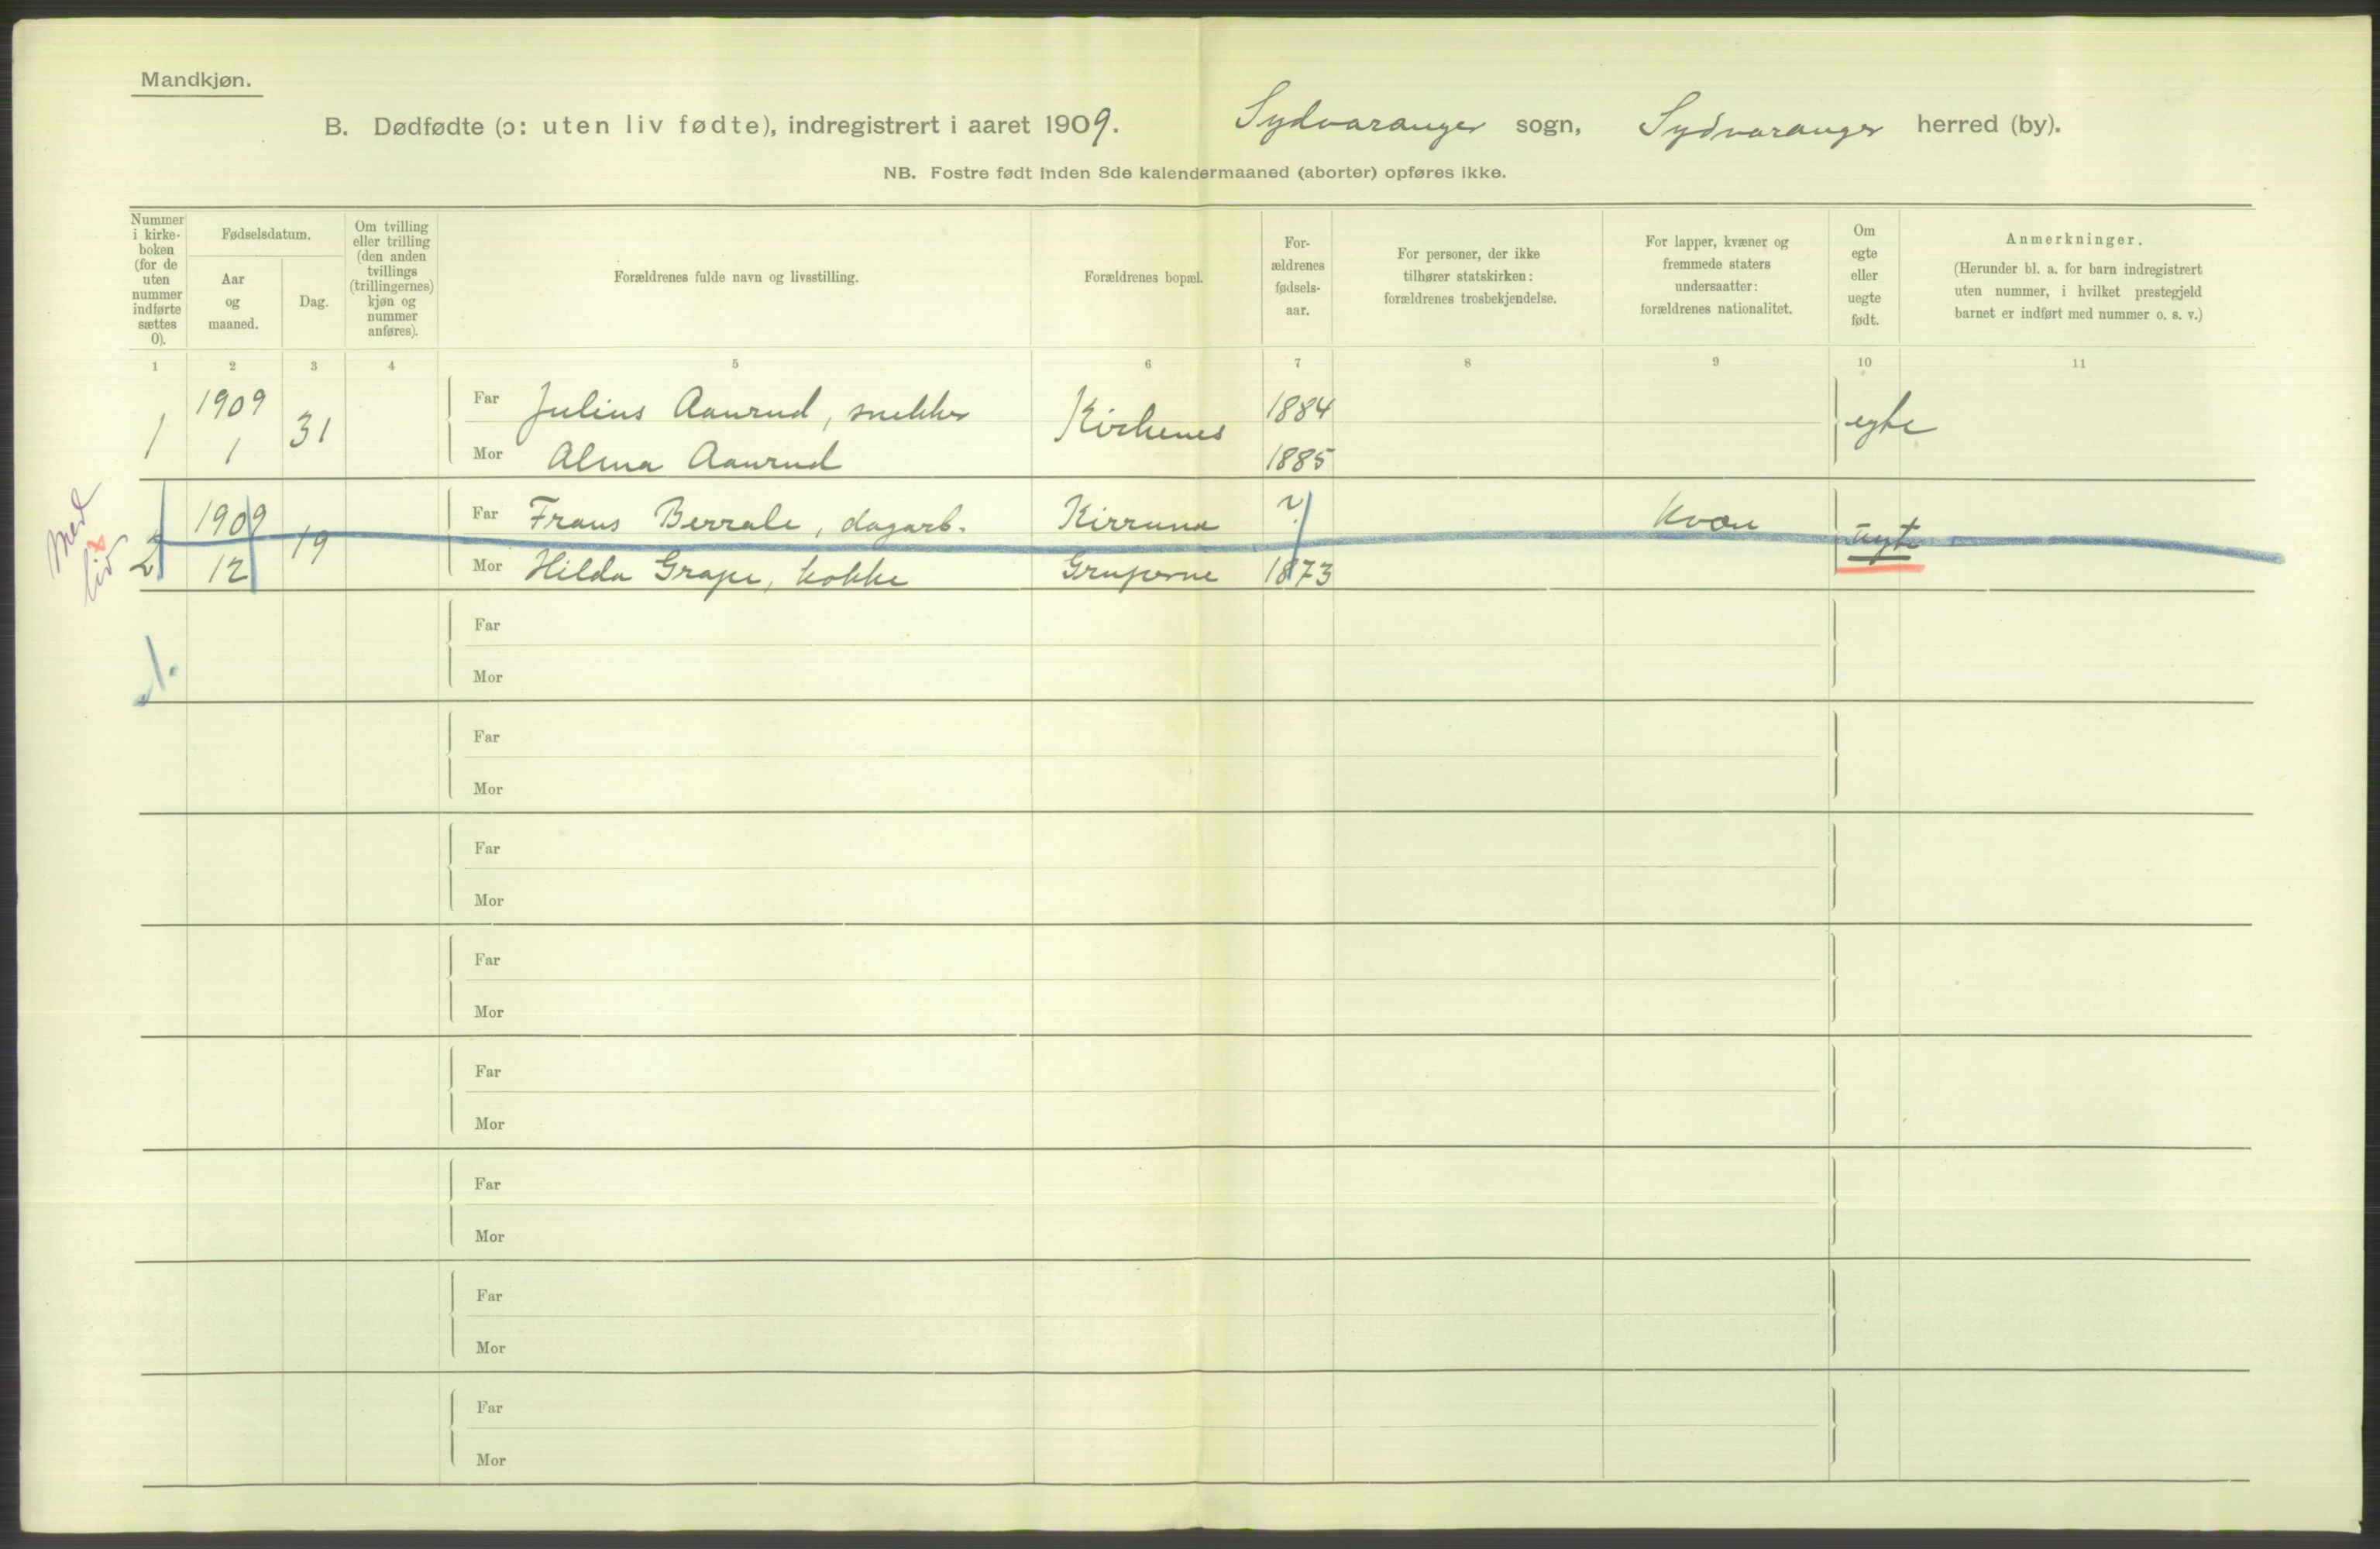 Mandkjøn.
B. Dødfødte (ɔ: uten liv fødte), indregistrert i aaret 1909. Sydvaranger sogn, Sydvaranger herred (by).
NB. Fostre født inden 8de kalendermaaned (aborter) opføres ikke.
Nummer i kirke-
boken
(for de
uten
nummer
indførte
sættes
0).
Fødselsdatum.
Aar
og
maaned.
Dag.
Om tvilling
eller trilling
(den anden
tvillings
(trillingernes)
kjøn og
nummer
anføres).
Forældrenes fulde navn og livsstilling.
Forældrenes bopæl.
For-
ældrenes
fødsels-
aar.
For personer, der ikke
tilhører statskirken:
forældrenes trosbekjendelse.
For lapper, kvæner og
fremmede staters
undersaatter:
forældrenes nationalitet.
Om
egte
eller
uegte
født.
Anmerkninger.
(Herunder bl. a. for barn indregistrert
uten nummer, i hvilket prestegjeld
barnet er indført med nummer o. s. v.)
1 2 3 4 5 6 7 8 9 10 11
1 1909 1 31 Far Julius Aanrud, snekker Kirkenes 1884 egte
Mor Alma Aanrud 1885
Med liv
2 1909 12 19 Far Frans Berrale, dagarb. Kirruna ? Kvæn uegte
Mor Hilda Grape, kokke Gruberne 1873
1.
Far
Mor
Far
Mor
Far
Mor
Far
Mor
Far
Mor
Far
Mor
Far
Mor
Far
Mor